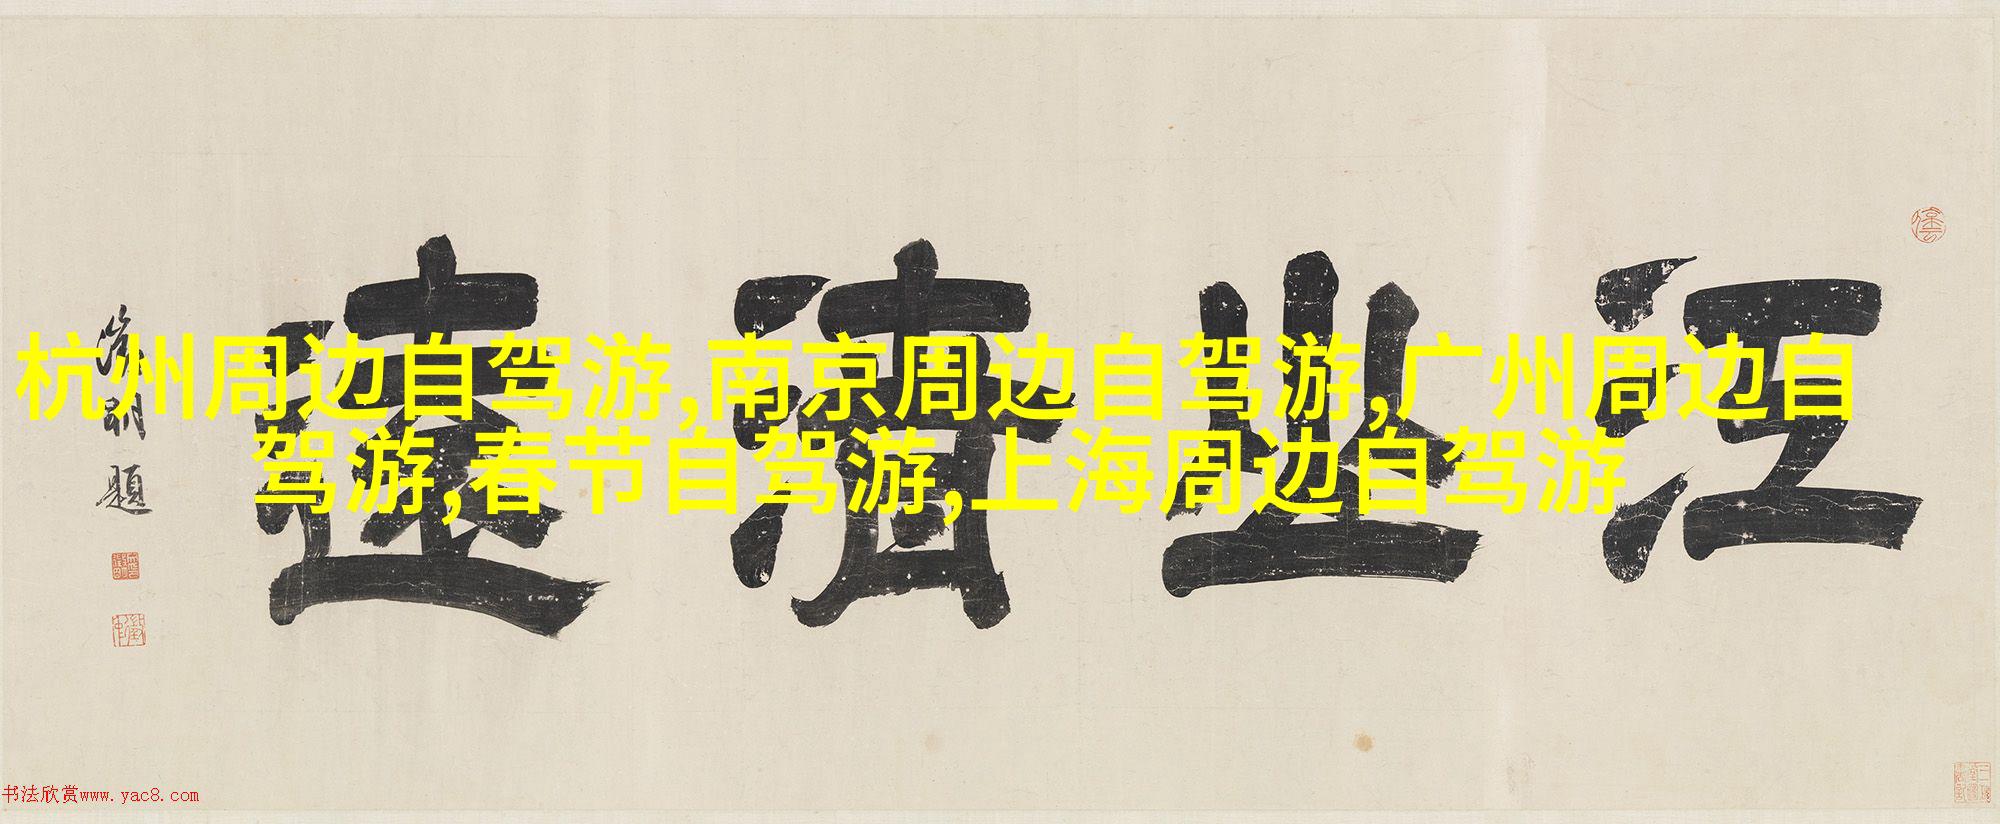 杭州周边自驾游,南京周边自驾游,广州周边自
驾游,春节自驾游,上海周边自驾游
江山清遠
題
书法欣赏www.yac8.com